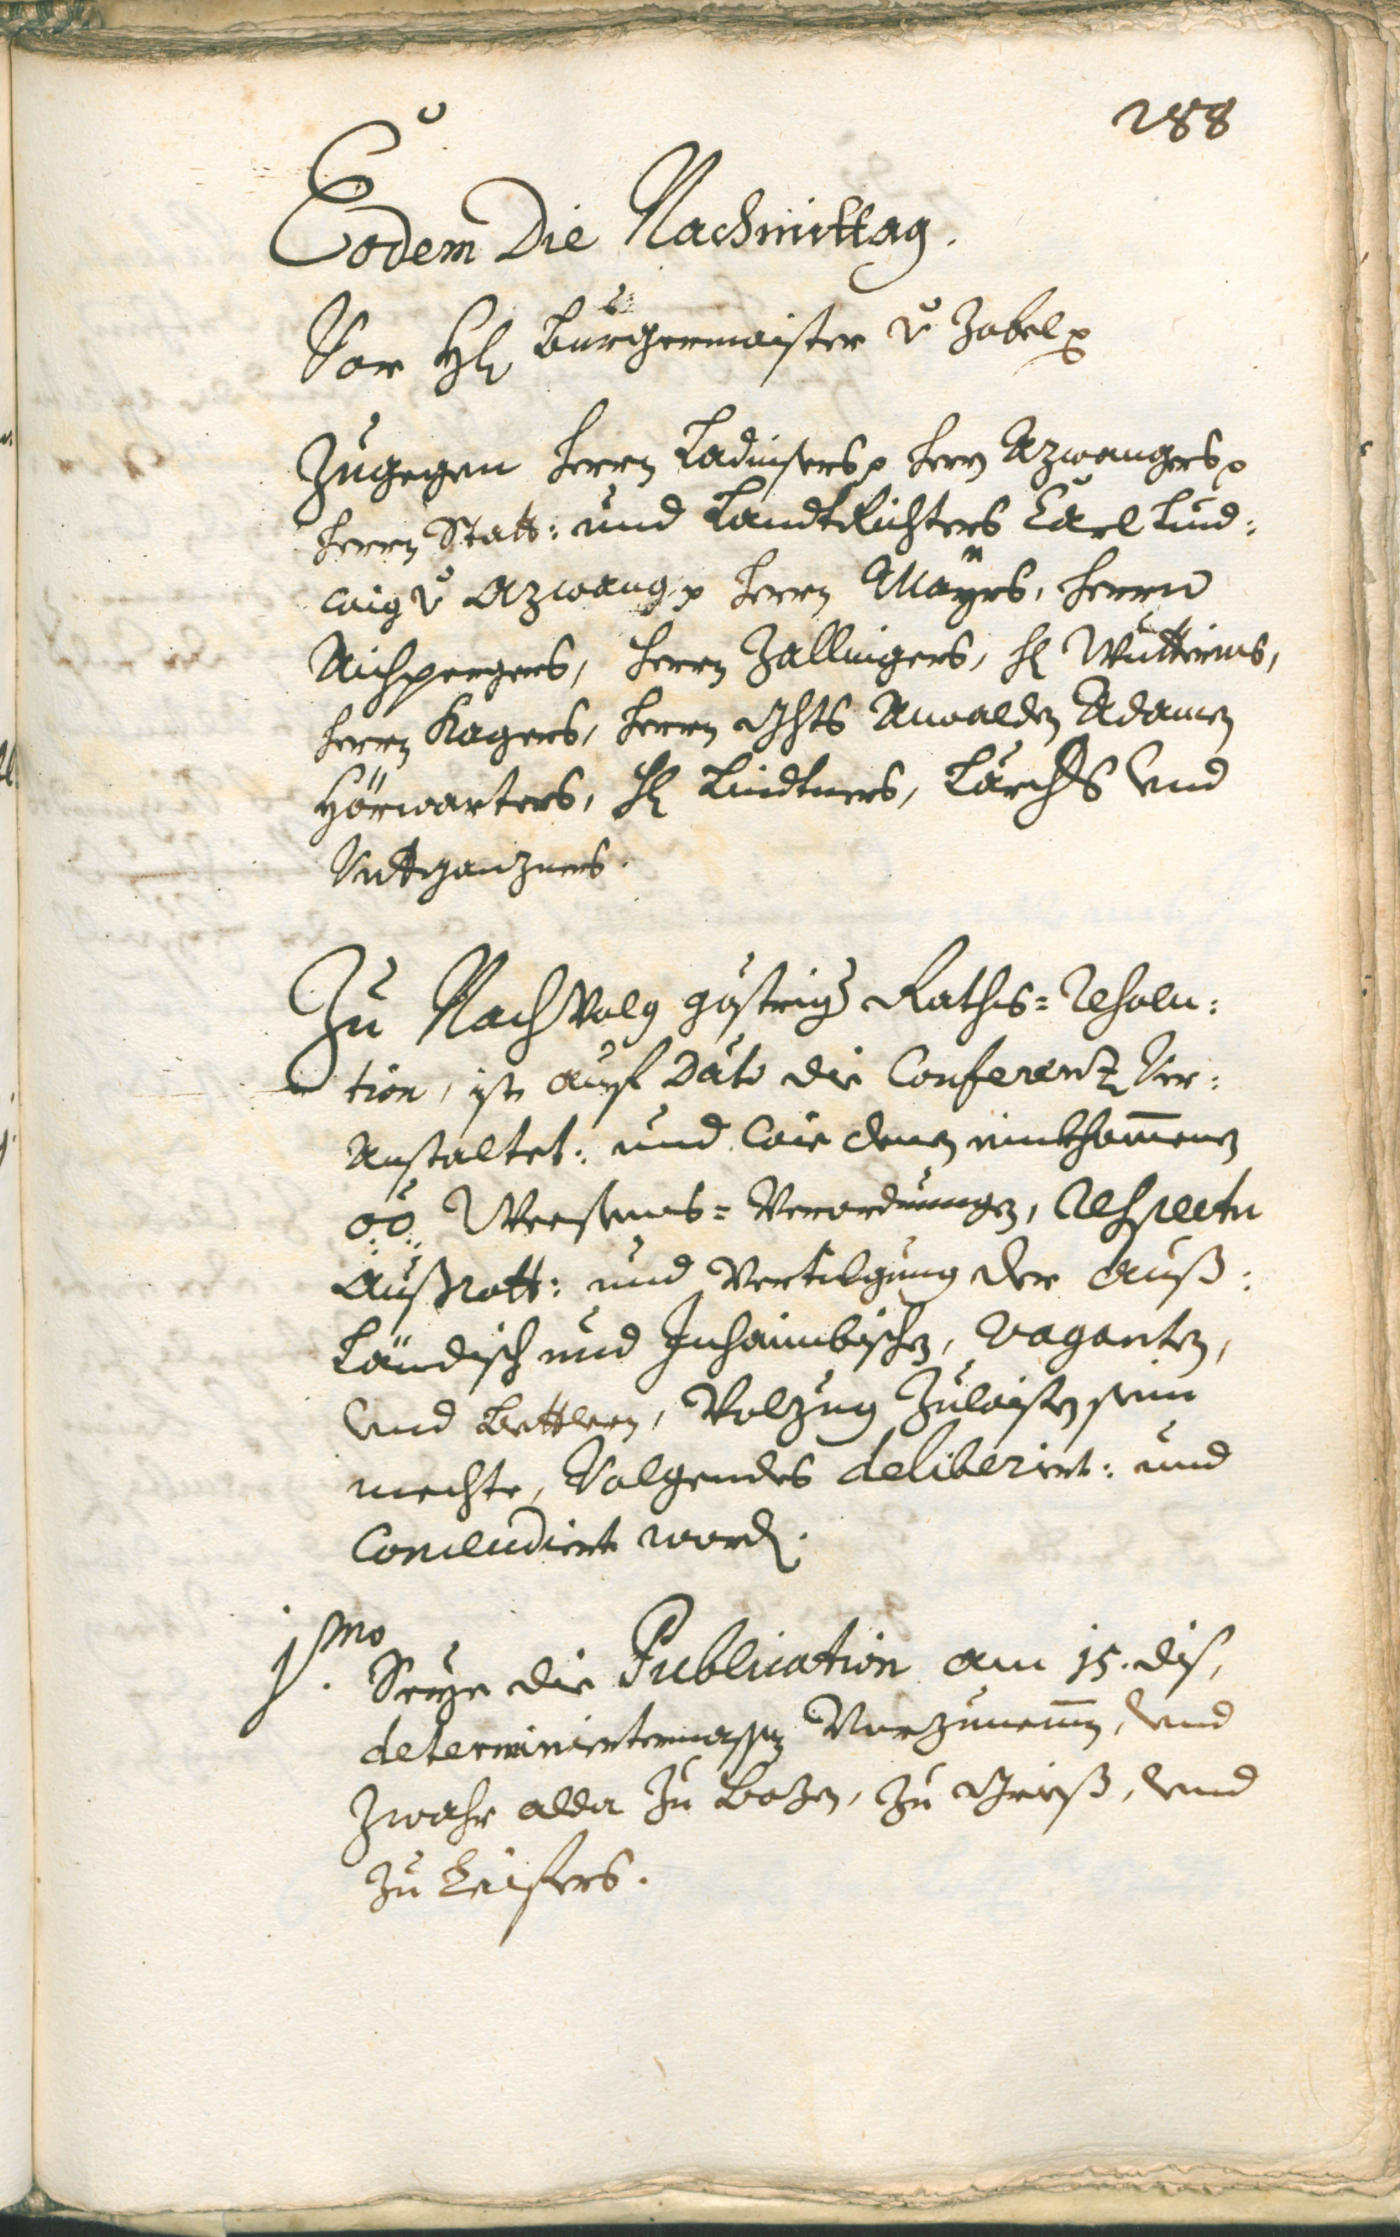 288
Eodem Die Nachmittag.
Vor H: Burgermaister v: Zobel p
Zugegen Herrn Ladinsers p Herrn Azwangers p
Herrn Statt: und Landtrichters Carl Lud:
wig v: Azwang p Herrn Mayrs, Herrn
Aichpergers, Herrn Zallingers, H: Wutterins,
Herrn Kagers, Herrn Ghts Anwalden Adamen
Hörwarters, H: Lindtners, Lärchs und
Zu Nachvolg göstrig Raths=Resolu:
tion, ist auf Dato die Conferenz Ver:
Anstaltet: und wie denen einkhommenen
oö: Weesens=Verordnungen, Respectu
Außrott: und Vertilgung der Auß:
Ländisch und Inhaimbischen, Vaganten,
und Bettlern, Volzug zulaisten sein
mechte, Volgendes deliberirt: und
Concludiert word.
1mo. Seye die Publication am 15. dis,
determiniertermassen Vorzunemmen, und
zwahr alda zu Bozen, zu Grieß, und
zu Leifers.